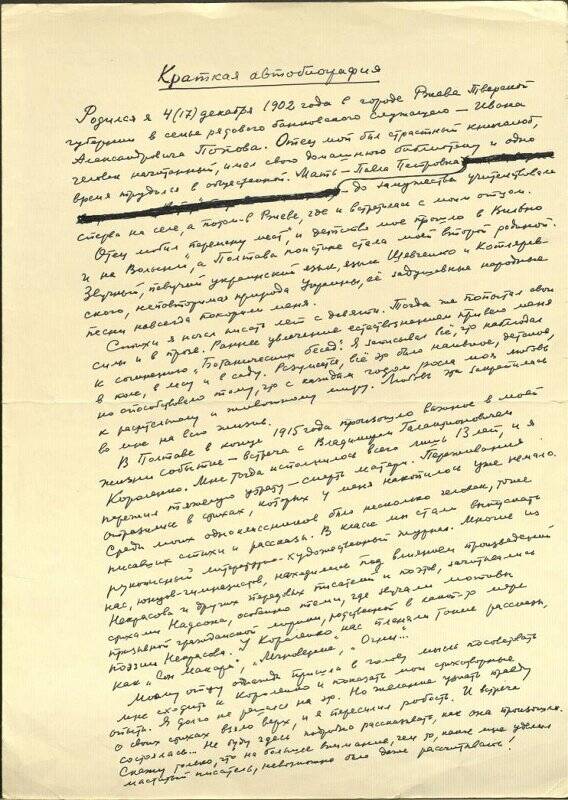 Краткая автобиография
Родился я 4(17) декабря 1902 года в городе Ржеве Тверской
губернии в семье рядового банковского служащего – Ивана
Александровича Попова. Отец мой был страстный книголюб,
человек начитанный, имел свою домашнюю библиотеку и одно
время трудился в общественной. Мать – Павла Петровна
– до замужества учительствовала
сперва на селе, а потом в Ржеве, где и встретилась с моим отцом.
Отец любил "перемену мест", и детство мое прошло в Вильно
и на Волыни, а Полтава поистине стала моей второй родиной.
Звучный, певучий украинский язык, язык Шевченко и Котлярев-
ского, неповторимая природа Украины, её задушевные народные
песни навсегда покорили меня.
Стихи я начал писать лет с девяти. Тогда же попытал свои
силы и в прозе. Раннее увлечение естествознанием привело меня
к сочинению "Ботанических бесед". Я записывал всё, что наблюдал
в поле, в лесу и в саду. Разумеется, всё это было наивное, детское,
но способствовало тому, что с каждым годом росла моя любовь
к растительному и животному миру. Любовь эта закрепилась
во мне на всю жизнь.
В Полтаве в конце 1915 года произошло важное в моей
жизни событие – встреча с Владимиром Галактионовичем
Короленко. Мне тогда исполнилось всего лишь 13 лет, и я
пережил тяжелую утрату – смерть матери. Переживания
отразились в стихах, которых у меня накопилось уже немало.
Среди моих одноклассников было несколько человек, тоже
писавших стихи и рассказы. В классе мы стали выпускать
рукописный литературно-художественный журнал. Многие из
нас, юнцов-гимназистов, находились под влиянием произведений
Некрасова и других передовых писателей и поэтов, зачитывались
стихами Надсона, особенно теми, где звучали мотивы
призывной гражданской лирики, родственной в какой-то мере
поэзии Некрасова. У Короленко нас пленяли такие рассказы,
как "Сон Макара", "Мгновение", "Огни"...
Моему отцу однажды пришла в голову мысль посоветовать
мне сходить к Короленко и показать мои стихотворные
опыты. Я долго не решался на это. Но желание узнать правду
о своих стихах взяло верх, и я пересилил робость. И встреча
состоялась... Не буду здесь подробно рассказывать, как она произошла.
Скажу только, что на большее внимание, чем то, какое мне уделил
маститый писатель, невозможно было даже рассчитывать!